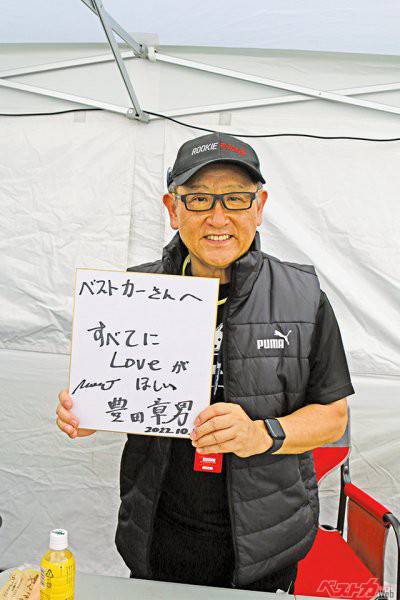 ROOKIE
ベストカーさんへ
すべてに
Loveが
ほしい
豊田章男
2022.10.
PUMA
ベストカー
Web